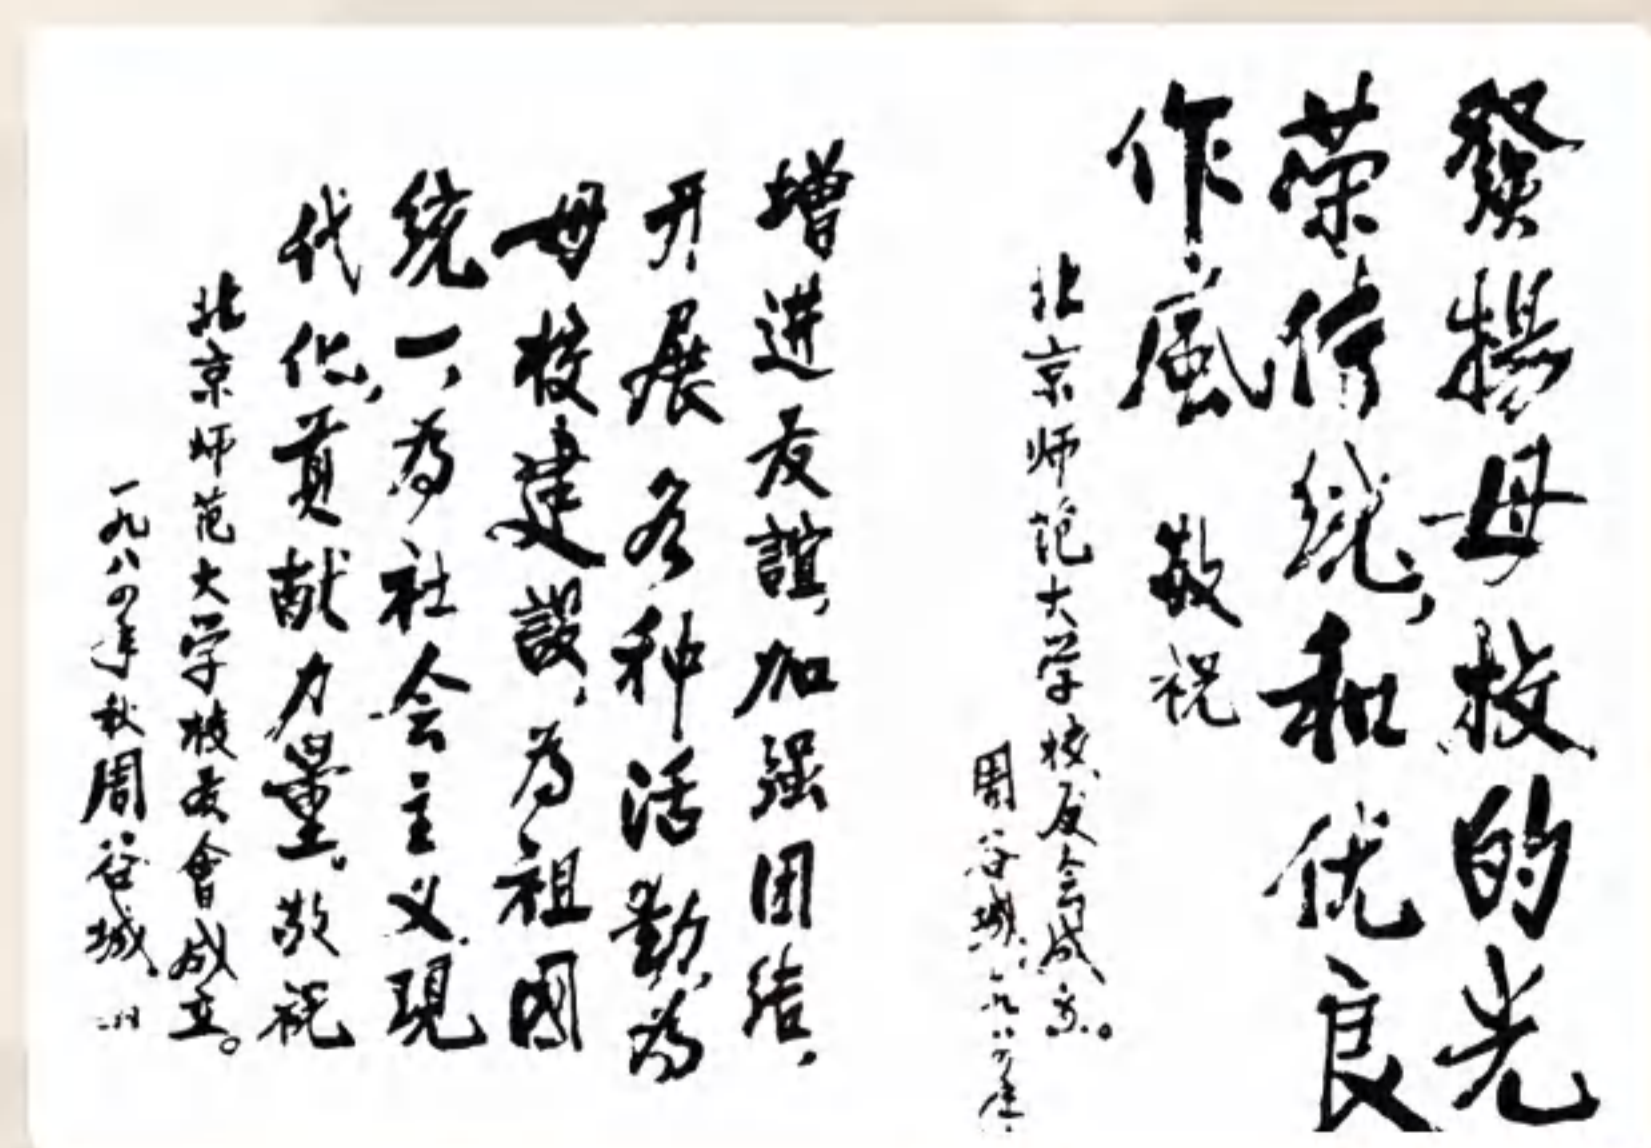 發揚母校的光
荣傳统,和优良
作風 敬祝
北京师范大学校友会成立。
周谷城 一九八四年
增进友誼,加强团结,
开展各种活動,為
母校建設,為祖國
统一,為社会主义现
代化,貢献力量。敬祝
北京师范大学校友會成立。
一九八四年秋周谷城